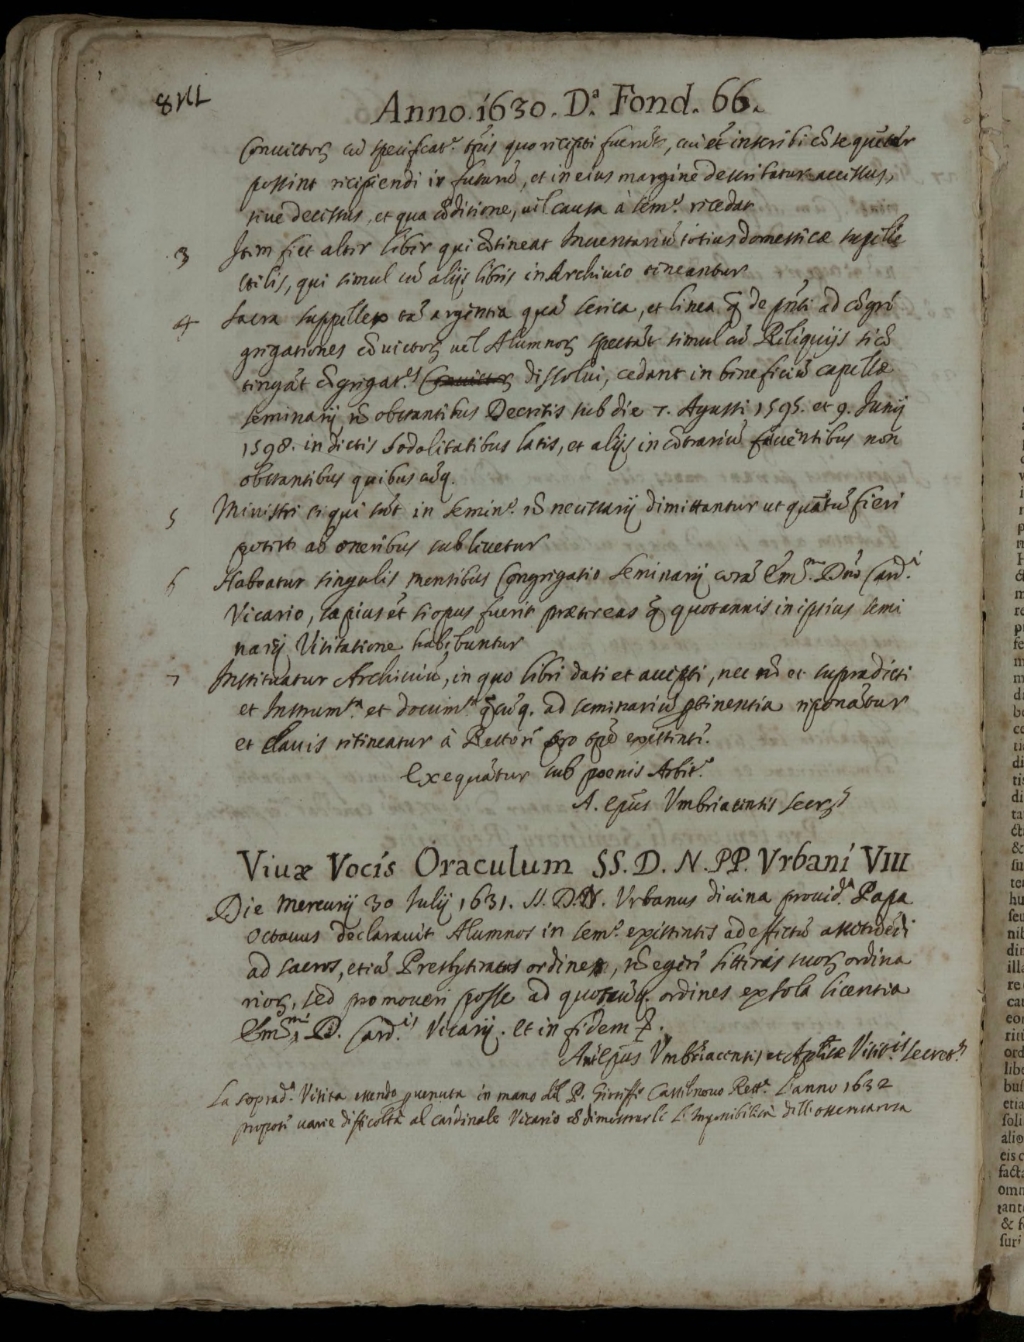 Anno. 1630. D.ª Fond. 66.
Convictorꝝ cū specificat.e quo recepti fuerūt, cui et̄ inscribi
possint recipiendi in futurū, et in eius margine describatur accessus,
sive decessus, et qua cōditione, vel causa à Sem.º recedat
3 Item fiet alter liber qui cōtineat Inventariū totius domesticæ supelle
ctilis, qui simul cū alijs libris in Archivio teneantur
4 Sacra suppellex tā argentea quā serica, et linea q̄ de ad cōgre
grigationes cōvictorꝝ vel Alumnorꝝ spectāt simul cū Reliquijs si cō
tingāt cōgrigat.es dissolui, cedant in beneficiū capellæ
seminarij nō obstantibus Decretis sub die 7. Agusti 1595. et 9. Junij
1598. in dictis Sodalitatibus latis, et alijs in cōtrariū faciētibus non
obstantibus quibuscūq.
5 Ministri et qui sūt in Semin.º nō necessarij dimittantur ut quātū fieri
potest ab oneribus sublevetur
6 Habeatur singulis mensibus Congrigatio Seminarij corā Em.mo Dnō Card.i
Vicario, sæpius et̄ si opus fuerit præter eas q̄ quotannis in ipsius semi
narij Visitatione habebuntur
7 Instituatur Archiviū, in quo libri dati et accepti, nec nō et supradicti
et Instrum.ta et docum.ta q̄cūq. ad seminariū ꝑtinentia reponātur
et clavis retineatur à Rectore pro tp̄e existente.
Exequātur sub poenis Arbit.e
A. Ep̄us Vmbriatensis Secr.s
Viuæ Vocis Oraculum SS. D. N. PP. Vrbani VIII
Die Mercurij 30 Julij 1631. SS. D. N. Vrbanus divina provid.ª Papa
Octavus declaravit Alumnos in Sem.º existentes ad effectū ascēdēdi
ad sacros, etiā Presbyteratus ordines, nō egere litteris suorꝝ ordina
riorꝝ, sed promoveri posse ad quoscūq. ordines ex sola licentia
Em.mi D. Card.is Vicarij. Et in fidem
Ep̄us Vmbriacensis et Aplicæ Visit.is Secret.s
La soprad.ª Visita essendo ꝑvenuta in mano del P. Castilnovo Rett.e l'anno 1632
propose varie difficoltà al cardinale Vicario cō dimostrarli l'impossibiltà dell'osservanza